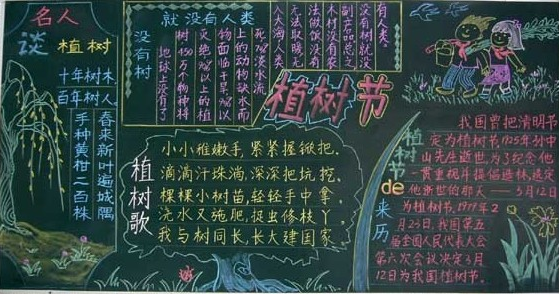 名人
谈植树
十年树木,
百年树人.
春来新叶遍城隅
手种黄柑二百株
没有树
就没有人类
地球上没有了
树450万个物种将
灭绝 以上的植
物面临干旱 以
上的动物缺水而
死 淡水流
人大海人类
无法取暖无
法做饭没有
木材没有农
副产品总之
没有树就没
有人类。
植树节
植树歌
小小稚嫩手,紧紧握锨把.
滴滴汗珠淌,深深把坑挖.
棵棵小树苗,轻轻手中拿.
浇水又施肥,捉虫修枝丫.
我与树同长,长大建国家
植树节de来历
我国曾把清明节
定为植树节1925年孙中
山先生逝世,为了纪念他
一贯重视并提倡造林,规定
他逝世的那天——3月12日
为植树节,1979年2
月23日,我国第五
届全国人民代表大会
第六次会议决定3月
12日为我国植树节。